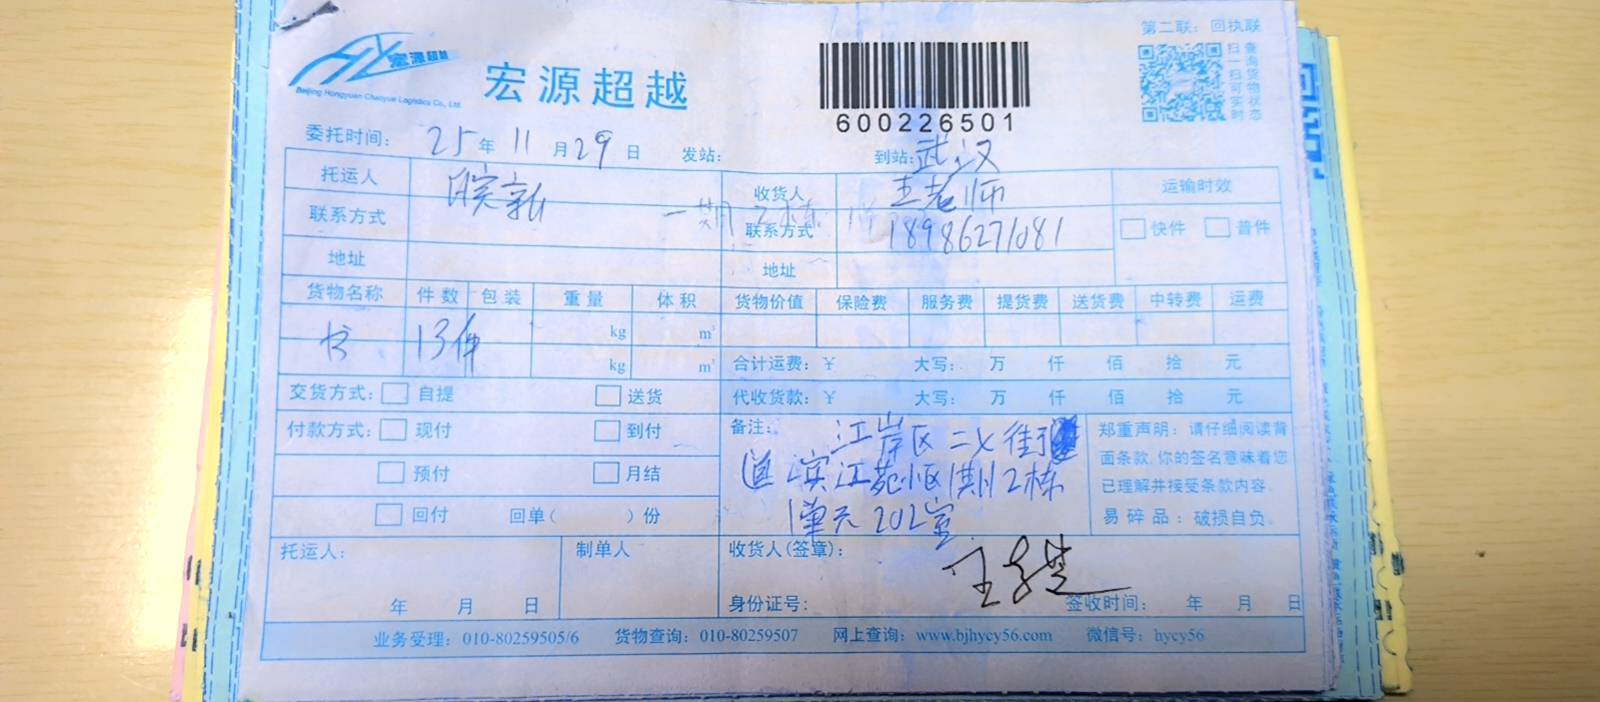 第二联：回执联
宏源超越
Beijing Hongyuan Chaoyue Logistics Co., Ltd.
宏源超越
600226501
扫一扫可实时
查询货物状态
委托时间： 25 年 11 月 29 日 发站： 到站：武汉
托运人 皖新 收货人 王老师 运输时效
联系方式 联系方式 18986271081 快件 普件
地址 地址
货物名称 件数 包装 重量 体积 货物价值 保险费 服务费 提货费 送货费 中转费 运费
书 13件 kg m³
kg m³ 合计运费：￥ 大写： 万 仟 佰 拾 元
交货方式： 自提 送货 代收货款：￥ 大写： 万 仟 佰 拾 元
付款方式： 现付 到付
预付 月结
回付 回单（ ）份
备注： 江岸区二七街
道滨江苑小区1期2栋
1单元202室
郑重声明：请仔细阅读背
面条款，你的签名意味着您
已理解并接受条款内容。
易碎品：破损自负。
托运人： 制单人 收货人(签章)： 王
年 月 日 身份证号： 签收时间： 年 月 日
业务受理：010-80259505/6 货物查询：010-80259507 网上查询：www.bjhycy56.com 微信号：hycy56